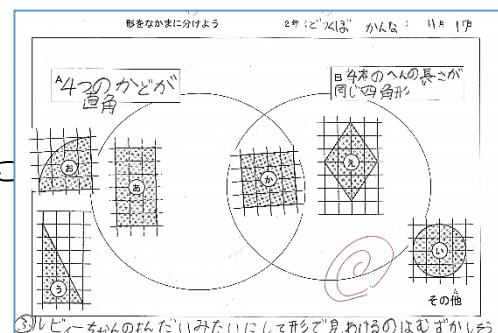 形をなかまに分けよう 2年 かんな 11月 17日
A 4つのかどが
直角
B 4本のへんの長さが
同じ四角形
お
あ
か
え
う
い
その他
③ルビィーちゃんのもんだいみたいにして形で見わけるのはむずかしそう